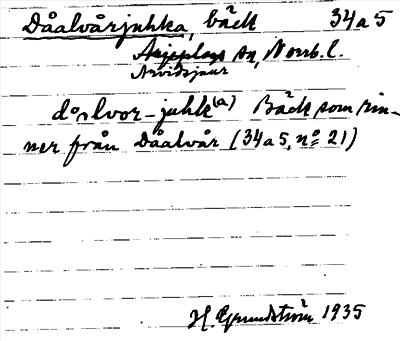 Dåalvårjuhka, bäck 34a5
Arjeplogs sn, Norrb. l.
Arvidsjaur
Bäck som rin-
ner från Dåalvår (34a5, nº 21)
H. Grundström 1935